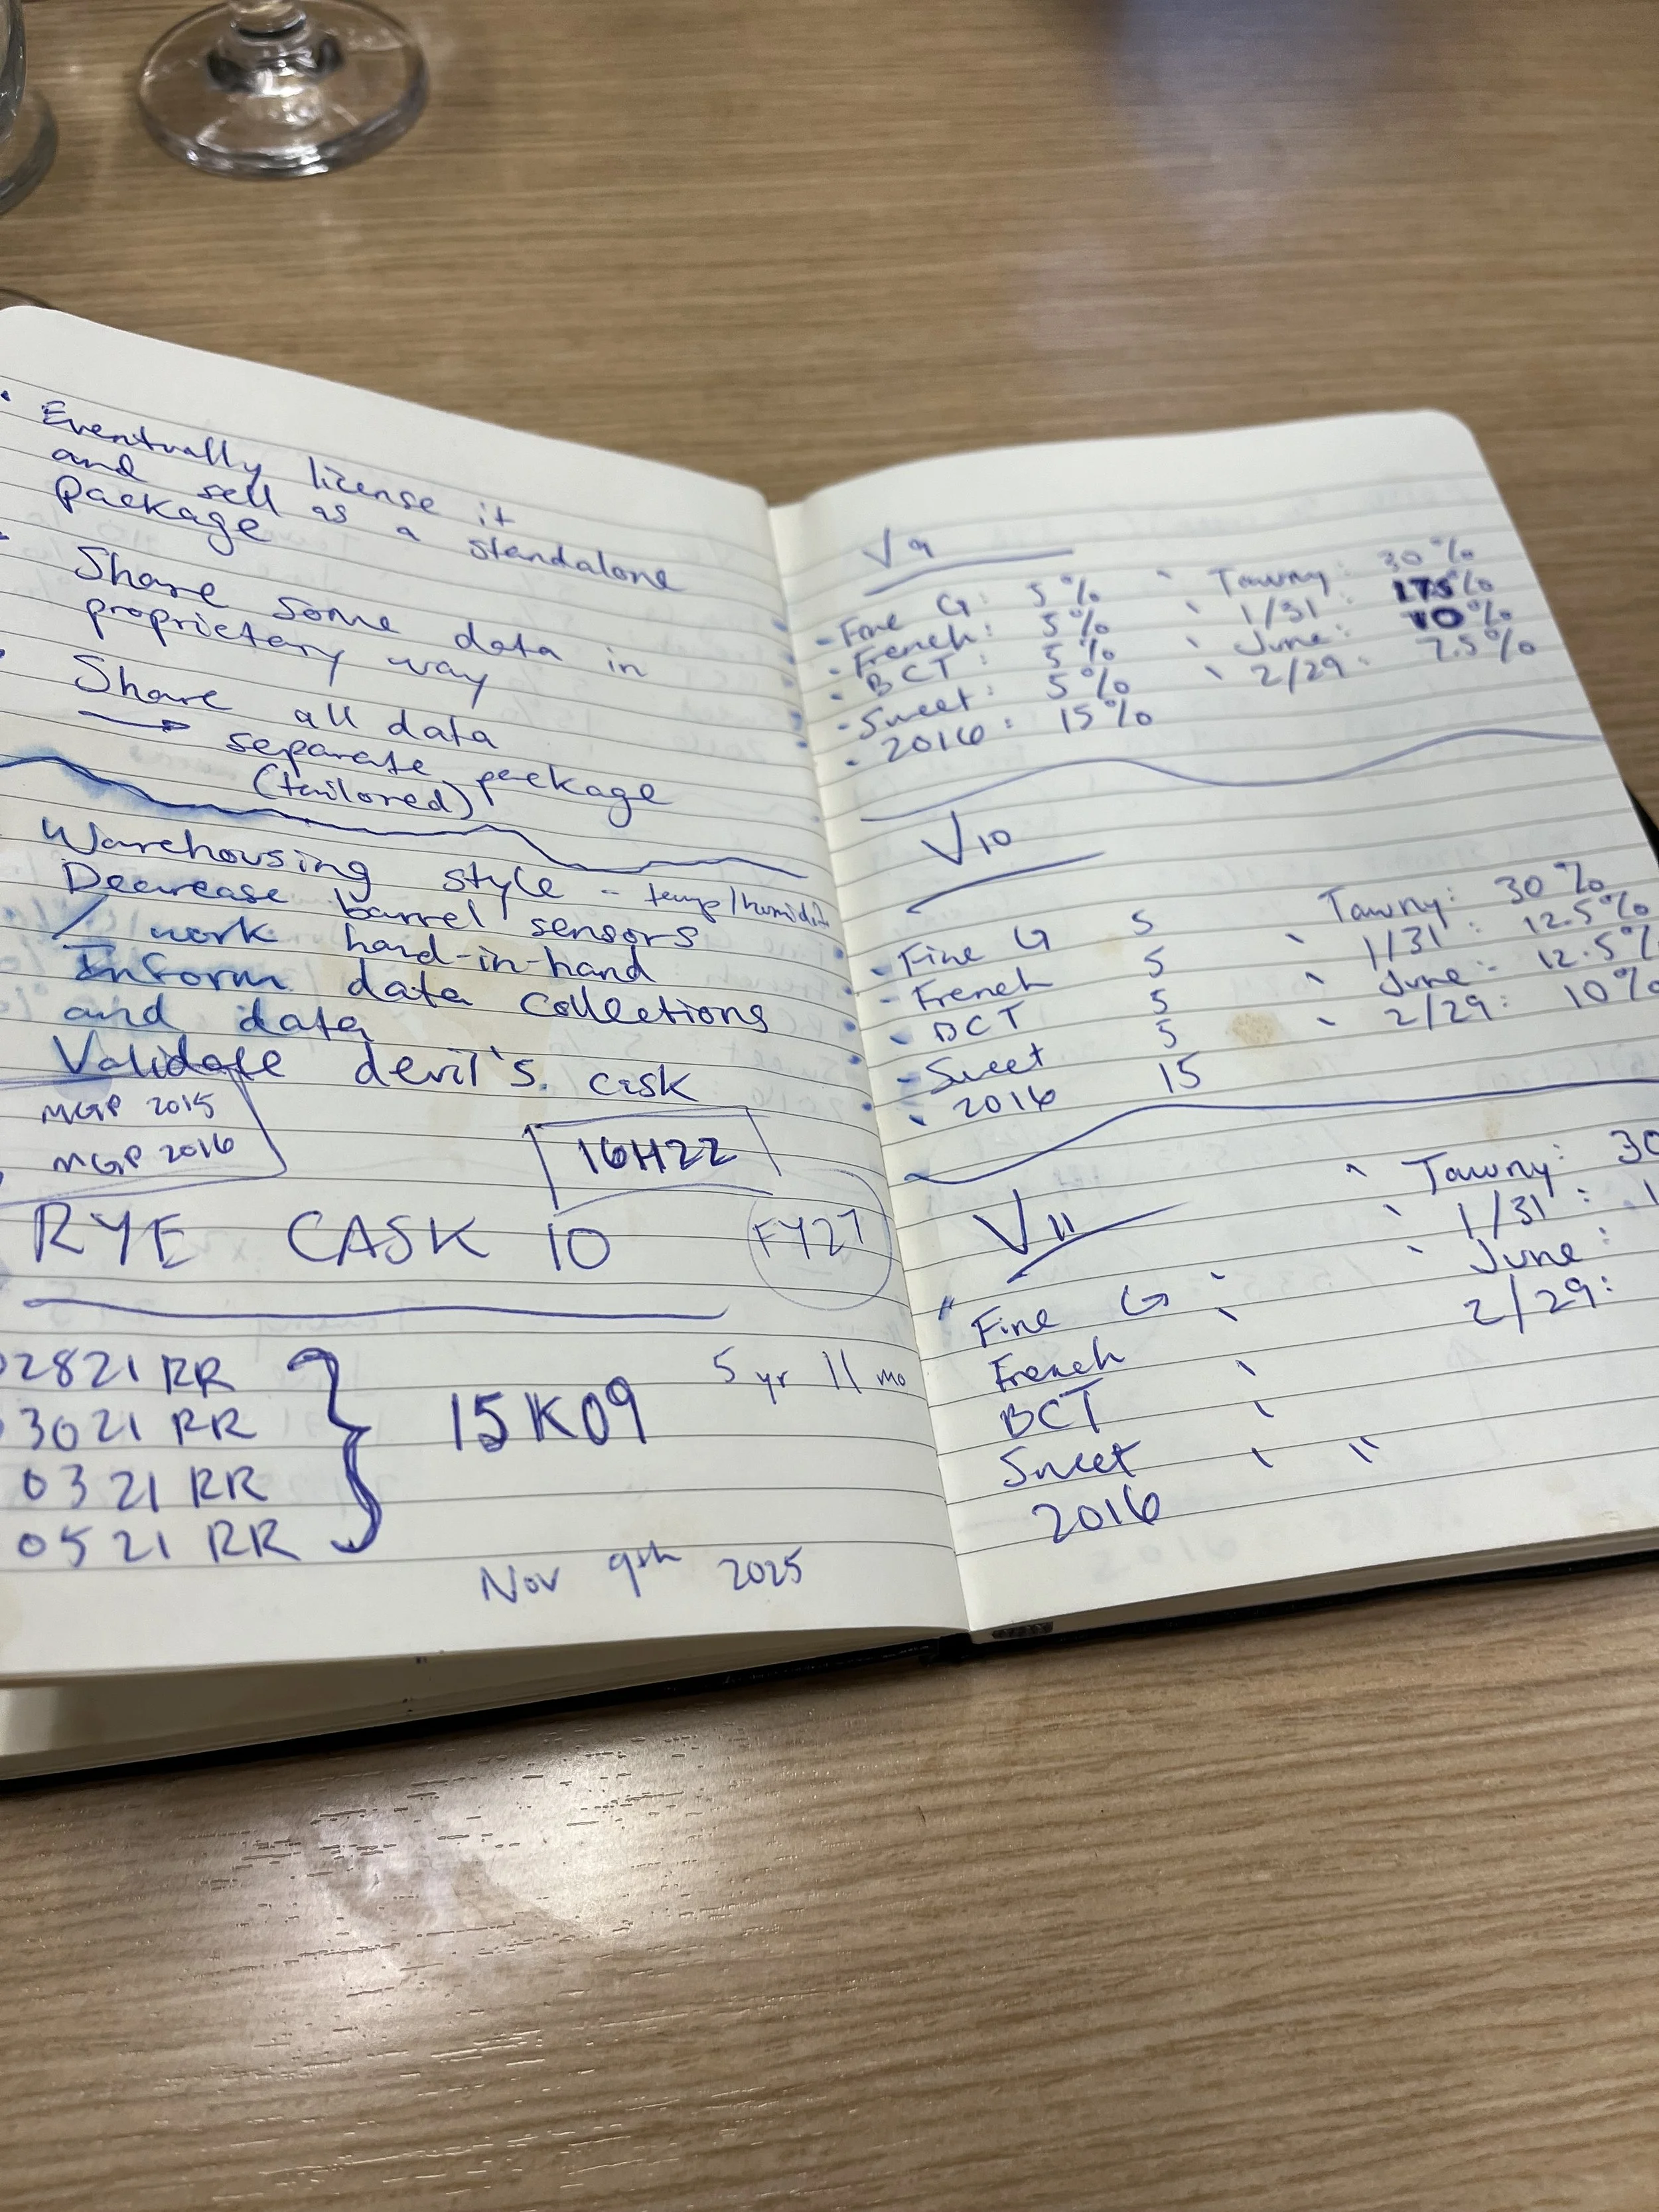 Eventually license it
and sell as a standalone
package
Share some data in
proprietary way
Share all data
→ separate package
(tailored)
Warehousing style - temp/humidity
Decrease barrel sensors
/ work hard-in-hand
Inform data collections
and data
Validate devil's cask
MGP 2015
MGP 2016
16H22
RYE CASK 10
FY27
02821 RR
3021 RR
0321 RR
0521 RR
15K09
5 yr 11 mo
Nov 9th 2025
V9
- Fine G: 5%
- French: 5%
• BCT: 5%
- Sweet: 5%
• 2016: 15%
Tawny: 30%
1/31: 17.5%
June: 10%
2/29: 7.5%
V10
Fine G 5
- French 5
BCT 5
- Sweet 5
2016 15
Tawny: 30%
1/31: 12.5%
June: 12.5%
2/29: 10%
V11
Fine G
French
BCT
Sweet
2016
Tawny: 30
1/31: 1
June:
2/29: